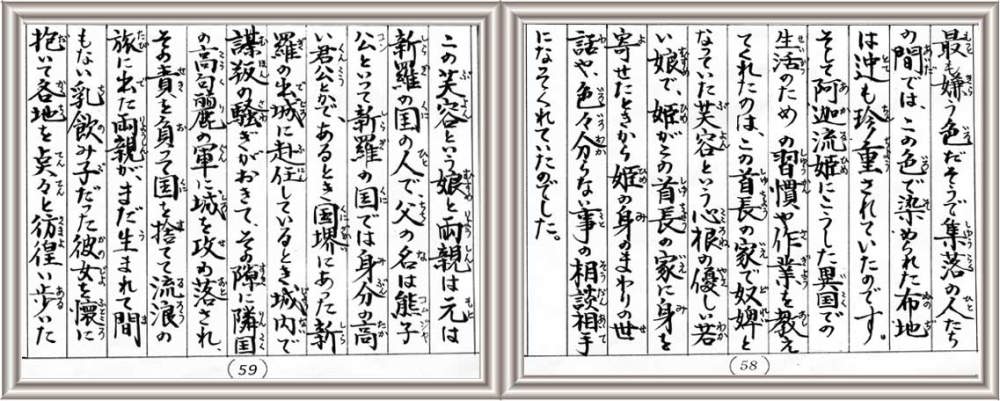 最も嫌う色だそうで集落の人たち
の間では、この色で染められた布地
は迚も珍重されていたのです。
そして阿迦流姫にこうした異国での
生活のための習慣や作業を教え
てくれたのは、この首長の家で奴婢と
なっていた芙容という心根の優しい若
い娘で、姫がこの首長の家に身を
寄せたときから姫の身のまわりの世
話や、色々分らない事の相談相手
になってくれていたのでした。
(58)
この芙容という娘と両親は元は
新羅の国の人で父の名は熊子
公といって新羅の国では身分の高
い君公とかで、あるとき国堺にあった新
羅の出城に赴任しているとき城内で
謀叛の騒ぎがおきて、その隙に隣国
の高句麗の軍に城を攻め落され、
その責を負って国を捨てて流浪の
旅に出た両親が、まだ生まれて間
もない乳飲み子だった彼女を懐に
抱いて各地を点々と彷徨い歩いた
(59)